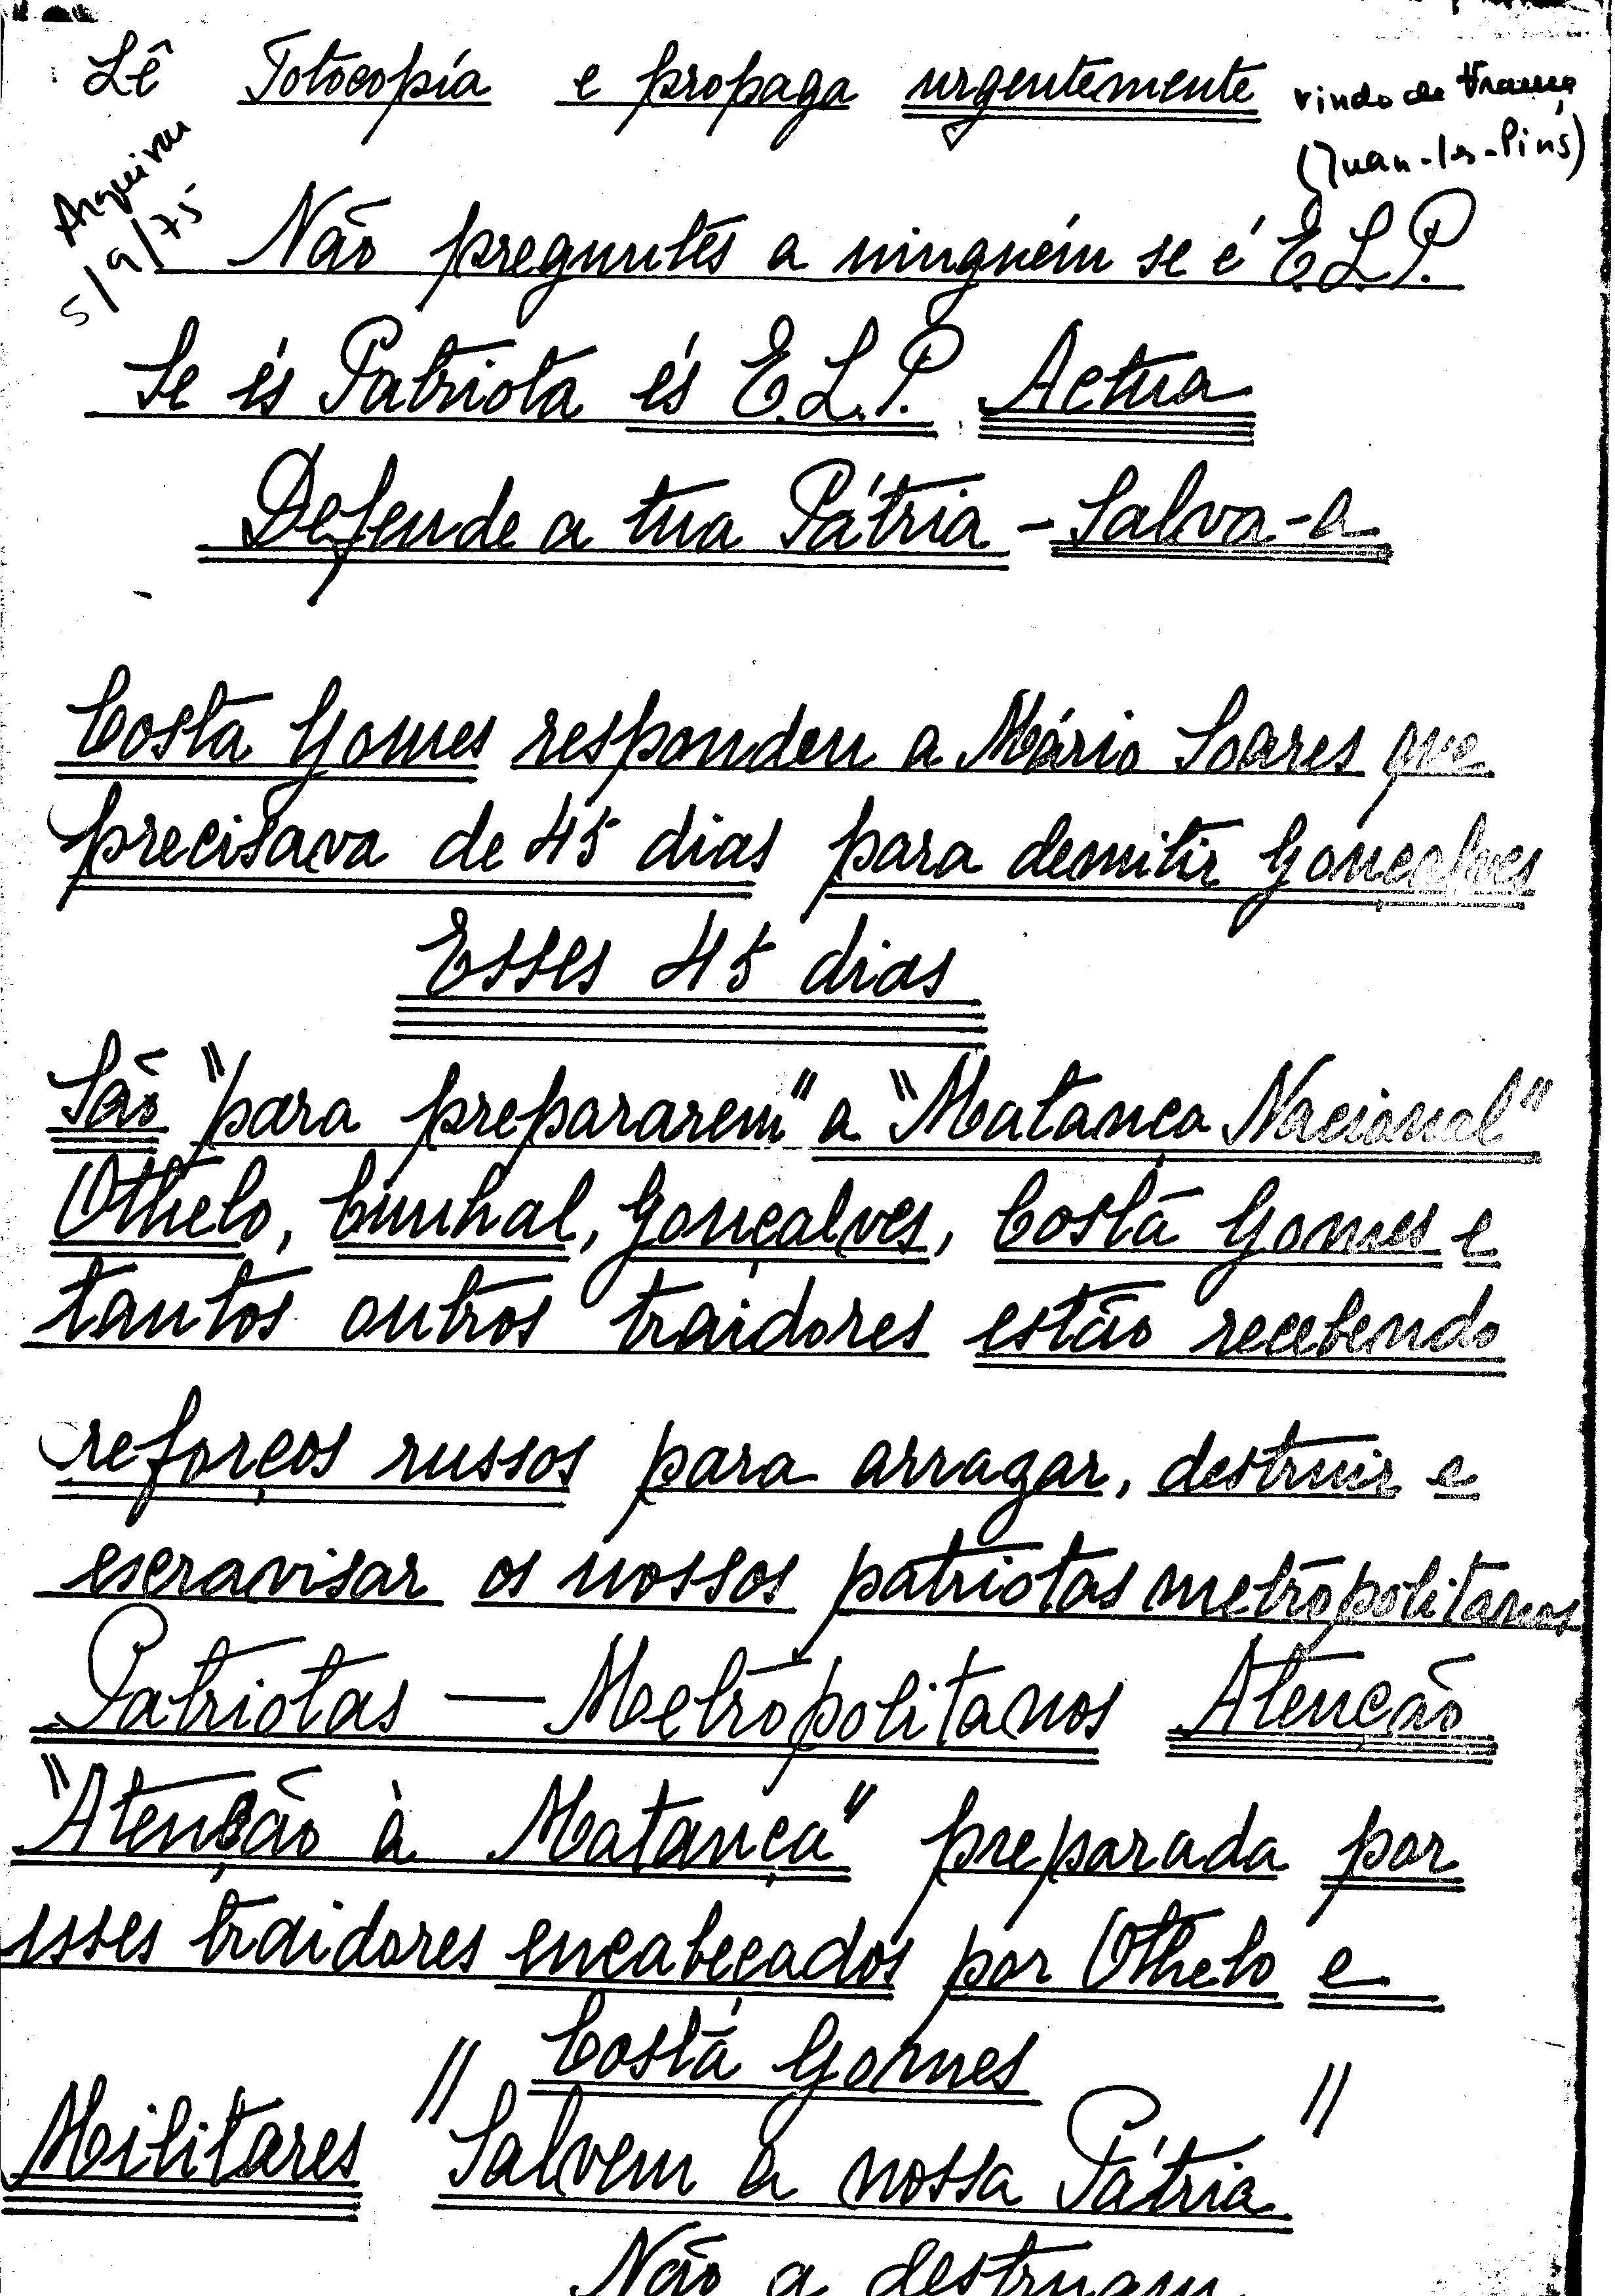 Lê Fotocopía e propaga urgentemente
vindo de França
(Juan-les-Pins)
Arquivar
5/9/75
Não preguntes a ninguém se é E.L.P.
Se és Patriota és E.L.P. Actua
Defende a tua Pátria - Salva-a
Costa Gomes respondeu a Mário Soares que
precisava de 45 dias para demitir Gonçalves
Esses 45 dias
São "para prepararem" a "Matança Nacional"
Othelo, Cunhal, Gonçalves, Costa Gomes e
tantos outros traidores estão recebendo
reforços russos para arragar, destruir e
escravisar os nossos patriotas metropolitanos
Patriotas — Metropolitanos Atenção
"Atenção à Matança" preparada por
esses traidores encabeçados por Othelo e
Costa Gomes
Militares "Salvem a nossa Pátria"
Não a destruam